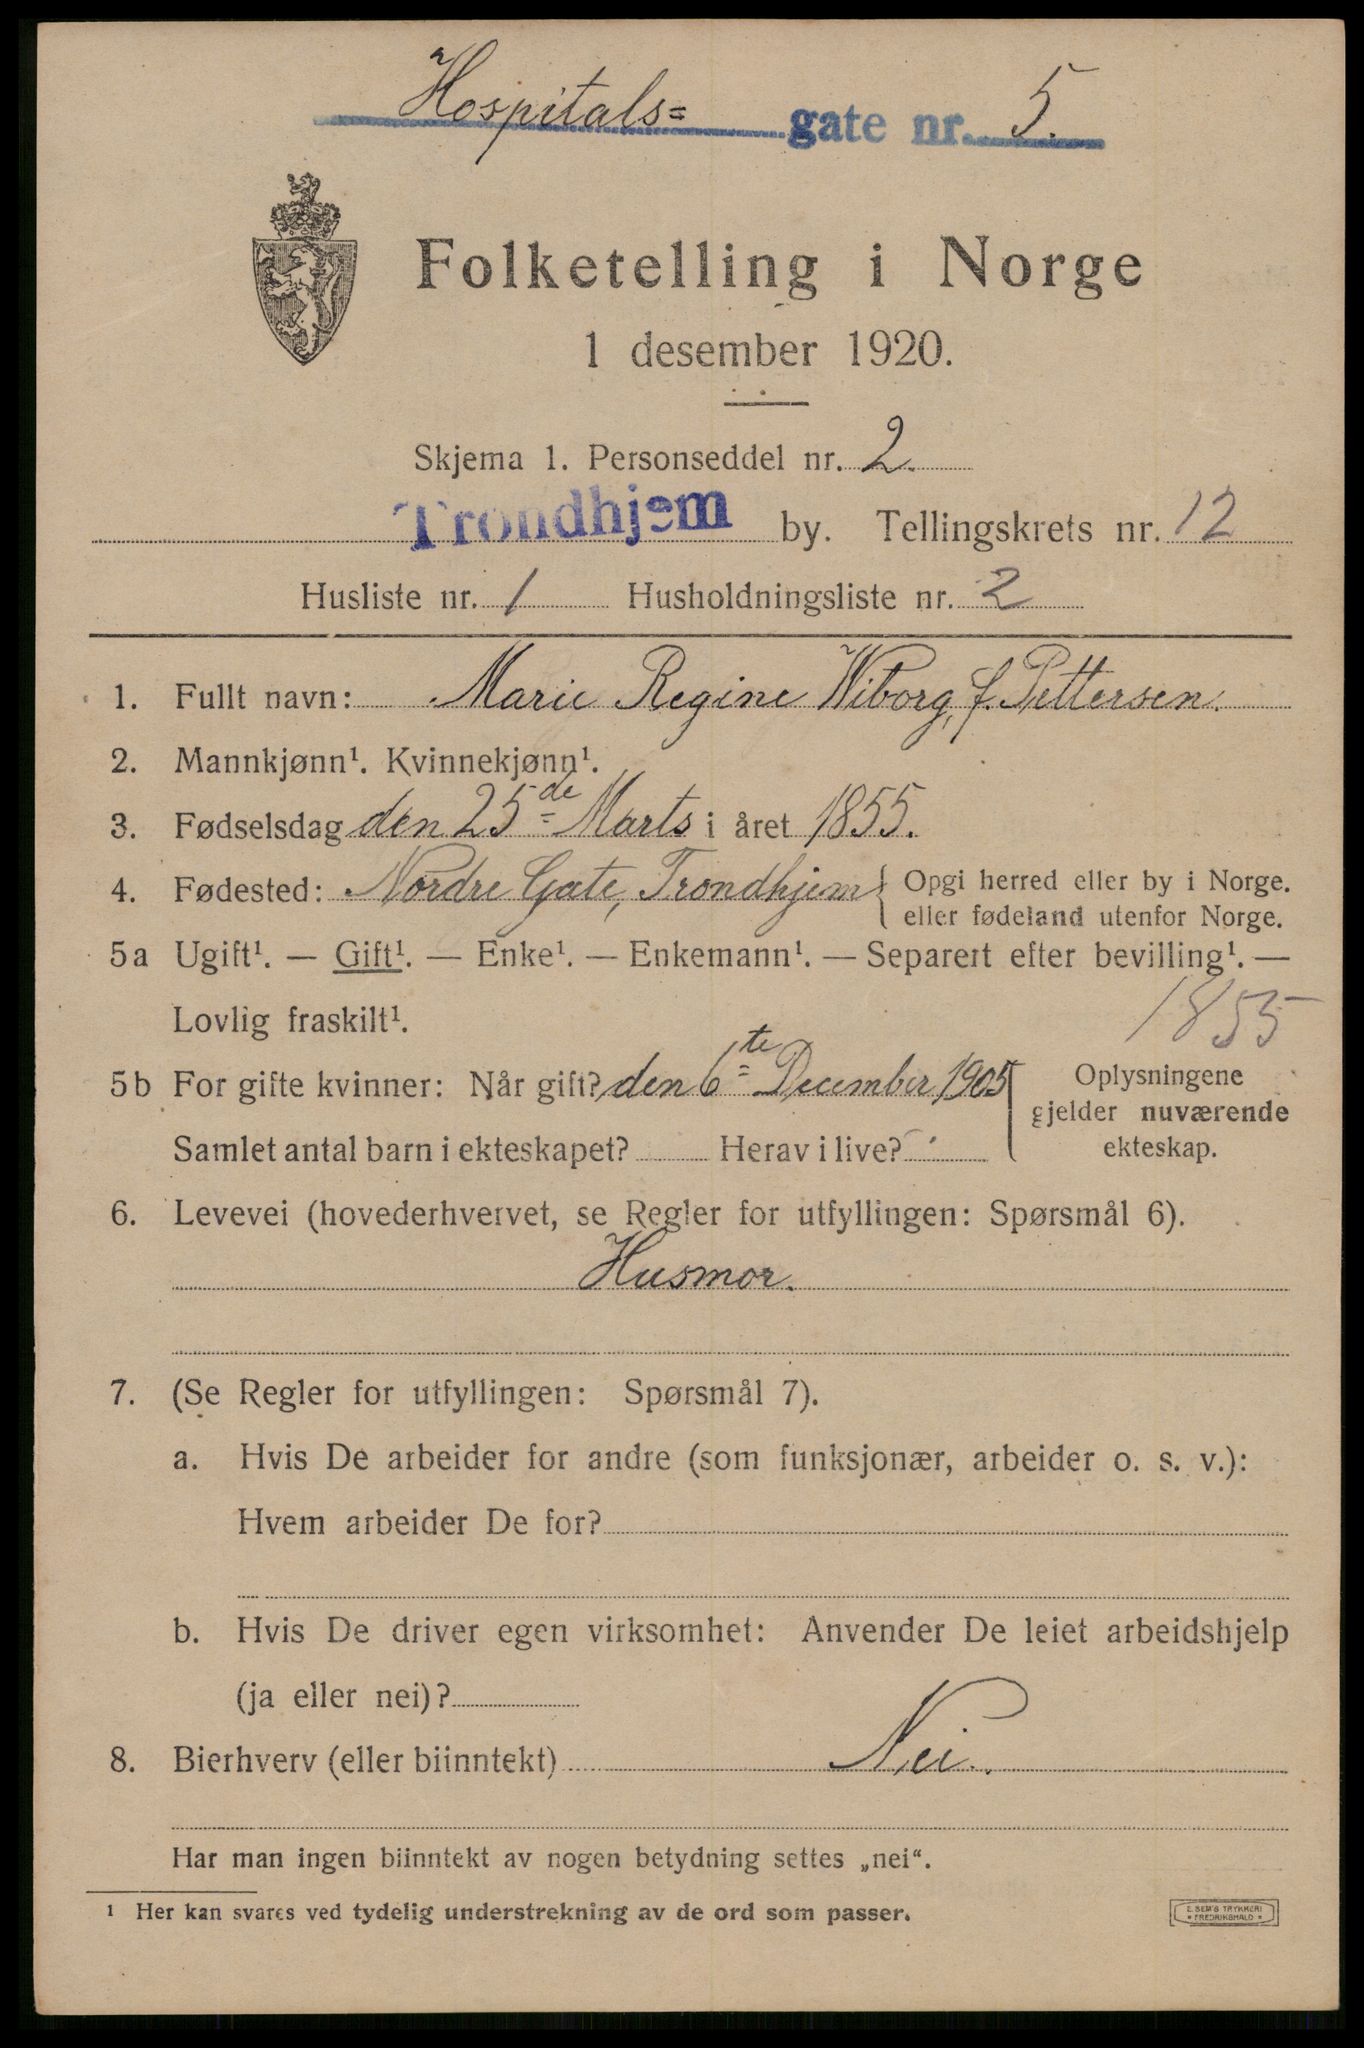 Hospitals= gate nr. 5.
Folketelling i Norge
1 desember 1920.
Skjema 1. Personseddel nr. 2.
Trondhjem by. Tellingskrets nr. 12
Husliste nr. 1 Husholdningsliste nr. 2
1. Fullt navn: Marie Regine Wiborg, f. Pettersen.
2. Mannkjønn¹. Kvinnekjønn¹.
3. Fødselsdag den 25de Marts i året 1855.
4. Fødested: Nordre Gate, Trondhjem { Opgi herred eller by i Norge.
eller fødeland utenfor Norge.
5a Ugift¹. — Gift¹. — Enke¹. — Enkemann¹. — Separert efter bevilling¹. —
Lovlig fraskilt¹. 1855
5b For gifte kvinner: Når gift? den 6te December 1905 Oplysningene
gjelder nuværende
Samlet antal barn i ekteskapet? Herav i live? ekteskap.
6. Levevei (hovederhvervet, se Regler for utfyllingen: Spørsmål 6).
Husmor.
7. (Se Regler for utfyllingen: Spørsmål 7).
a. Hvis De arbeider for andre (som funksjonær, arbeider o. s. v.):
Hvem arbeider De for?
b. Hvis De driver egen virksomhet: Anvender De leiet arbeidshjelp
(ja eller nei)?
8. Bierhverv (eller biinntekt) Nei.
Har man ingen biinntekt av nogen betydning settes „nei“.
¹ Her kan svares ved tydelig understrekning av de ord som passer.
E. SEM'S TRYKKERI
* FREDRIKSHALD *